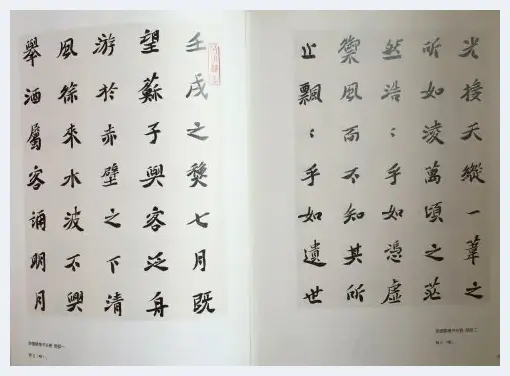 壬戌之龝七月既
望蘇子與客泛舟
游於赤壁之下清
風徐來水波不興
舉酒屬客誦明月
光接天縱一葦之
所如凌萬頃之茫
然浩〻乎如憑虛
禦風而不知其所
止飄〻乎如遺世